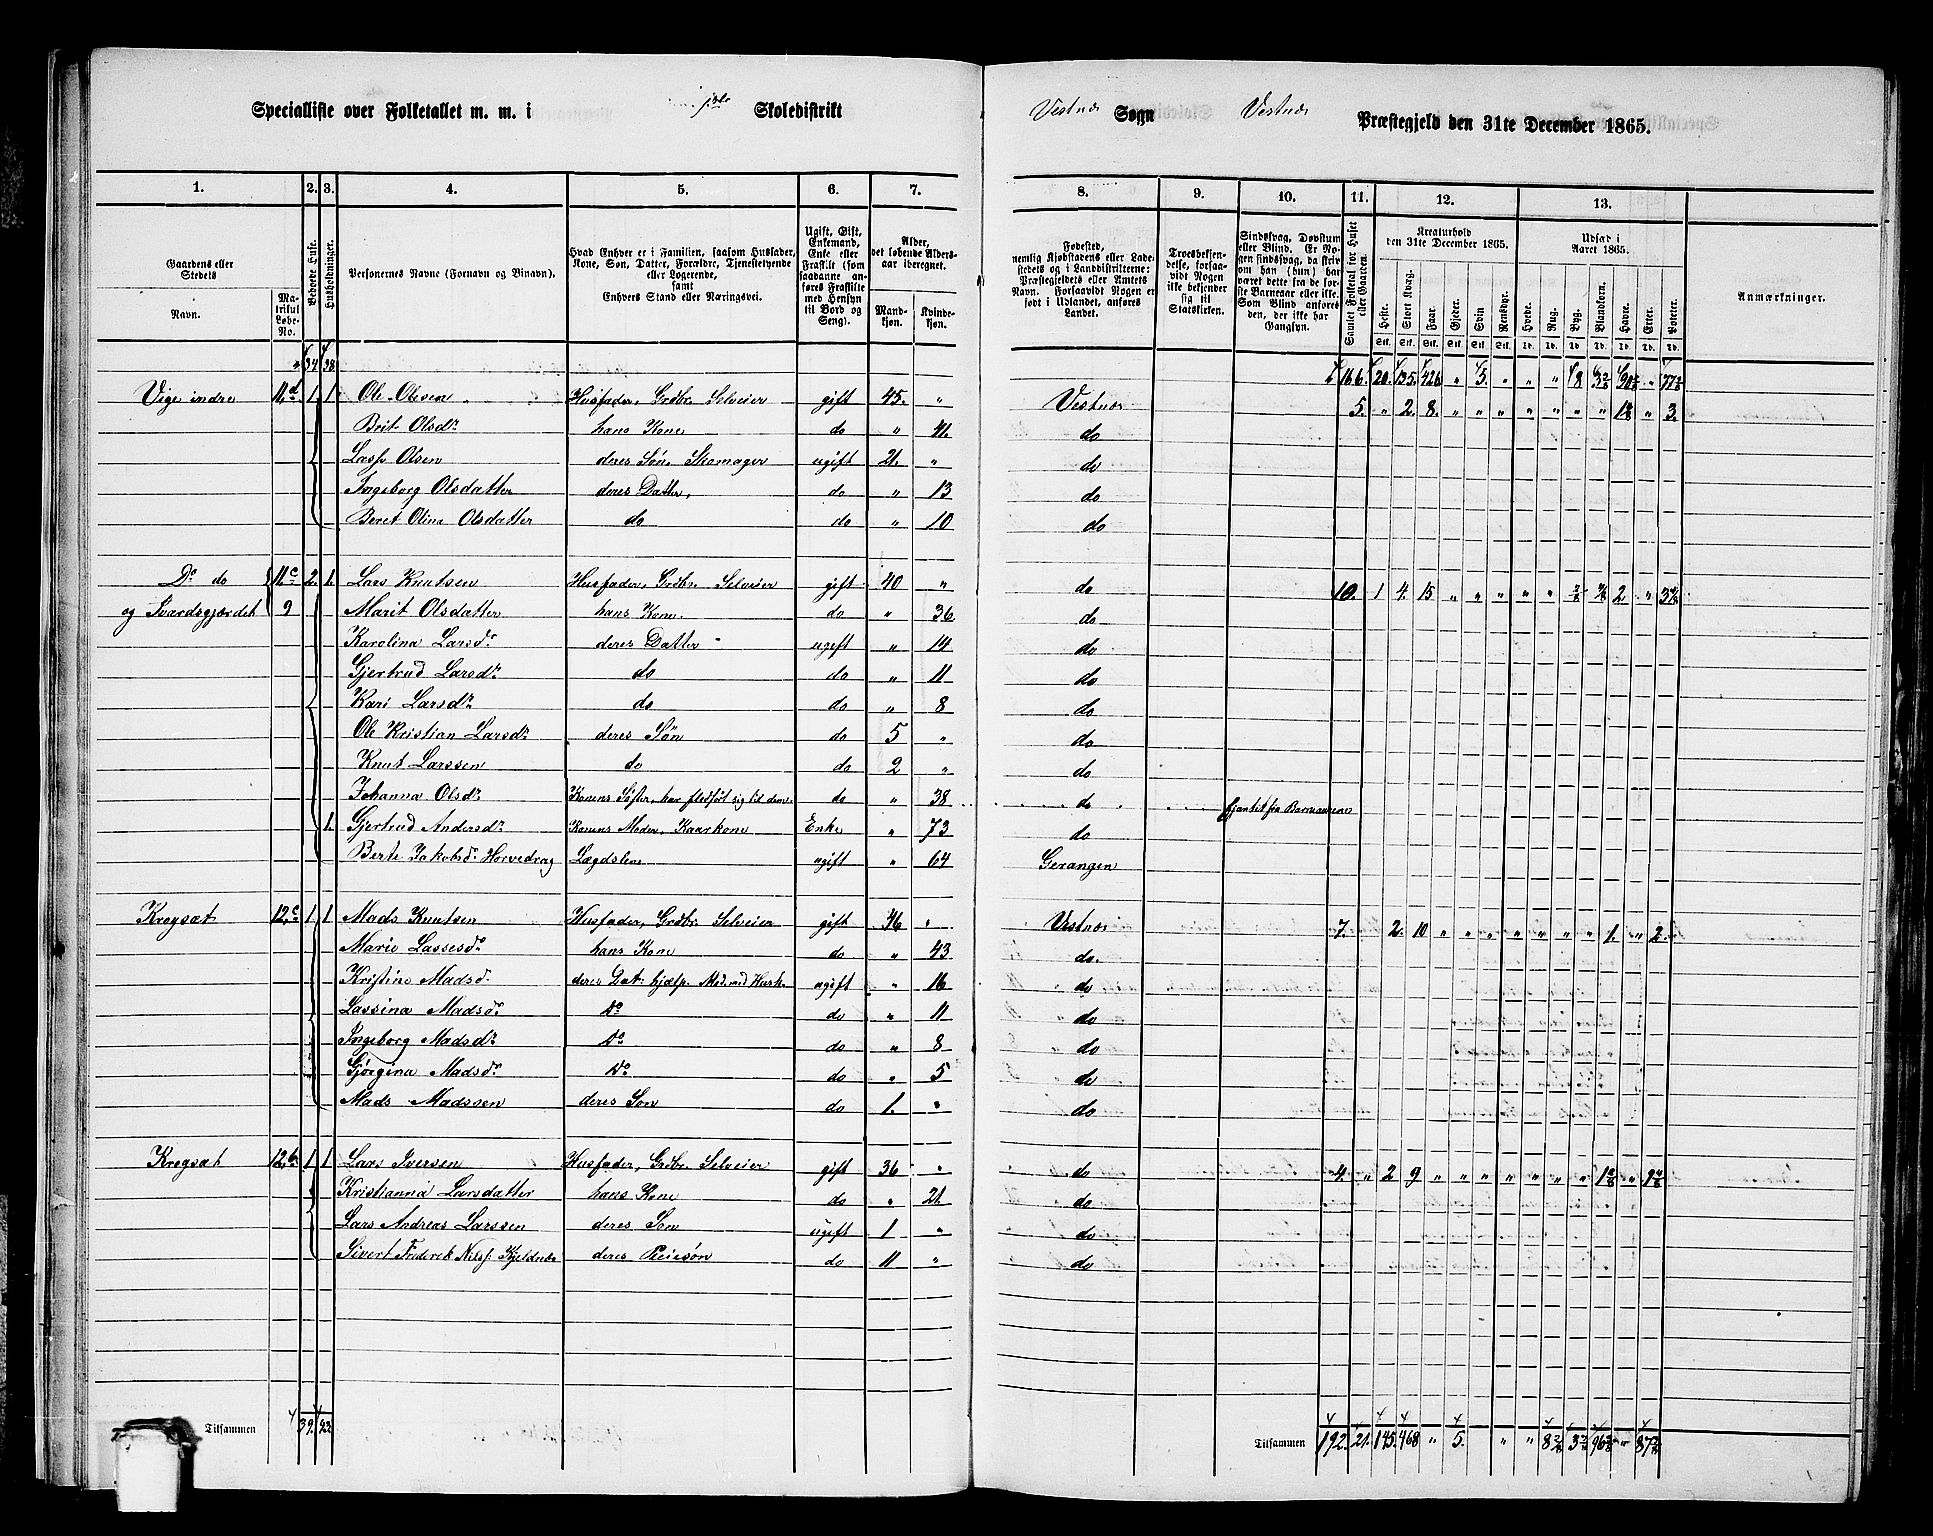 Specialliste over Folketallet m. m. i Skoledistrikt
Vestnæs Sogn Vestnæs Præstegjeld den 31te December 1865.
1. 2. 3. 4. 5. 6. 7. 8. 9. 10. 11. 12. 13.
Gaardens eller Stedets
Navn.
Matrikul Løbe-No.
Beboede Huse.
Husholdninger.
Personernes Navne (Fornavn og Binavn).
Hvad Enhver er i Familien, saasom Husfader, Kone, Søn, Datter, Forældre, Tjenestetyende eller Logerende, samt Enhvers Stand eller Næringsvei.
Ugift, Gift, Enkemand, Enke eller Fraskilt (som saadanne anføres Fraskilte med Hensyn til Bord og Seng).
Alder, det løbende Aldersaar iberegnet.
Mandkjøn. Kvindekjøn.
Fødested, nemlig Kjøbstadens eller Ladestedets og i Landdistrikterne: Præstegjeldets eller Amtets Navn. Forsaavidt Nogen er født i Udlandet, anføres Landet.
Troesbekjendelse, forsaavidt Nogen ikke bekjender sig til Statskirken.
Sindssvag, Døvstum eller Blind. Er Nogen sindssvag, da skrives om han (hun) har været dette fra de første Barneaar eller ikke. Som Blind anføres den, der ikke har Gangsyn.
Samlet Folketal for Huset eller Gaarden.
Kreaturhold den 31te December 1865.
Heste. Stort Kvæg. Faar. Gjeder. Svin. Rensdyr.
Udsæd i Aaret 1865.
Hvede. Rug. Byg. Blandkorn. Havre. Erter. Poteter.
Anmærkninger.
34 38 166. 20. 135. 426 " 5. " " " 8 " 77
Vige indre 11,d 1 1 Ole Olesen Husfader, Grdbr. Selveier gift 45. " Vestnæs 5. " 2. 8. " " " " " " " " 3.
Brit Olsdr hans Kone do " 41. do
Lass Olsen deres Søn, Skomager ugift 21. " do
Ingeborg Olsdatter deres Datter, do " 13 do
Beret Olina Olsdatter do do " 10 do
Do do 11,c 2. 1. Lars Knutsen Husfader, Grdbr. Selveier gift 40 " do 10. 1 4. 15 " " " " " 2 "
og Svardsgjærdet 9 Marit Olsdatter hans Kone. do " 36. do
Karolina Larsdr deres Datter ugift " 14 do
Gjertrud Larsdr do do " 11 do
Kari Larsdr do do " 8 do
Ole Kristian Larsdr deres Søn do 5 " do
Knut Larssen do do 2 " do
Johanna Olsdr Konens Søster, har fledført sig til dem. do " 38 do fjantet fra Barneaarene
1. Gjertrud Andersdr Konens Moder, Kaarkone Enke " 73 do
Berte Jakobsdr Horvedrag Lægdslem ugift " 64 Gerangen
Krogsæt 12,c 1 1 Mads Knutsen Husfader, Grdbr. Selveier gift 46 " Vestnæs 7. 2. 10 " " " " " " " 1. " 2.
Marie Lassesdr hans Kone do " 43 do.
Kristine Madsdr deres Dat. hjælp. Mod. med Hush. ugift " 16 do
Lassina Madsdr Do do " 11 do
Ingeborg Madsdr Do do " 8 do
Gjørgina Madsdr Do do " 5 do
Mads Madssen deres Søn do 1. " do
Krogsæt 12,b 1 1 Lars Iversen Husfader, Grdbr. Selveier gift 36 " do 4. " 2 9 " " " " " " "
Kristianna Larsdatter hans Kone do " 21. do
Lars Andreas Larssen deres Søn ugift 1 " do
Sivert Frederik Nilss. Kjeldnæs deres Pleiesøn do 11 " do
Tilsammen 39. 42
Tilsammen 192. 21. 145. 468 " 5. " "